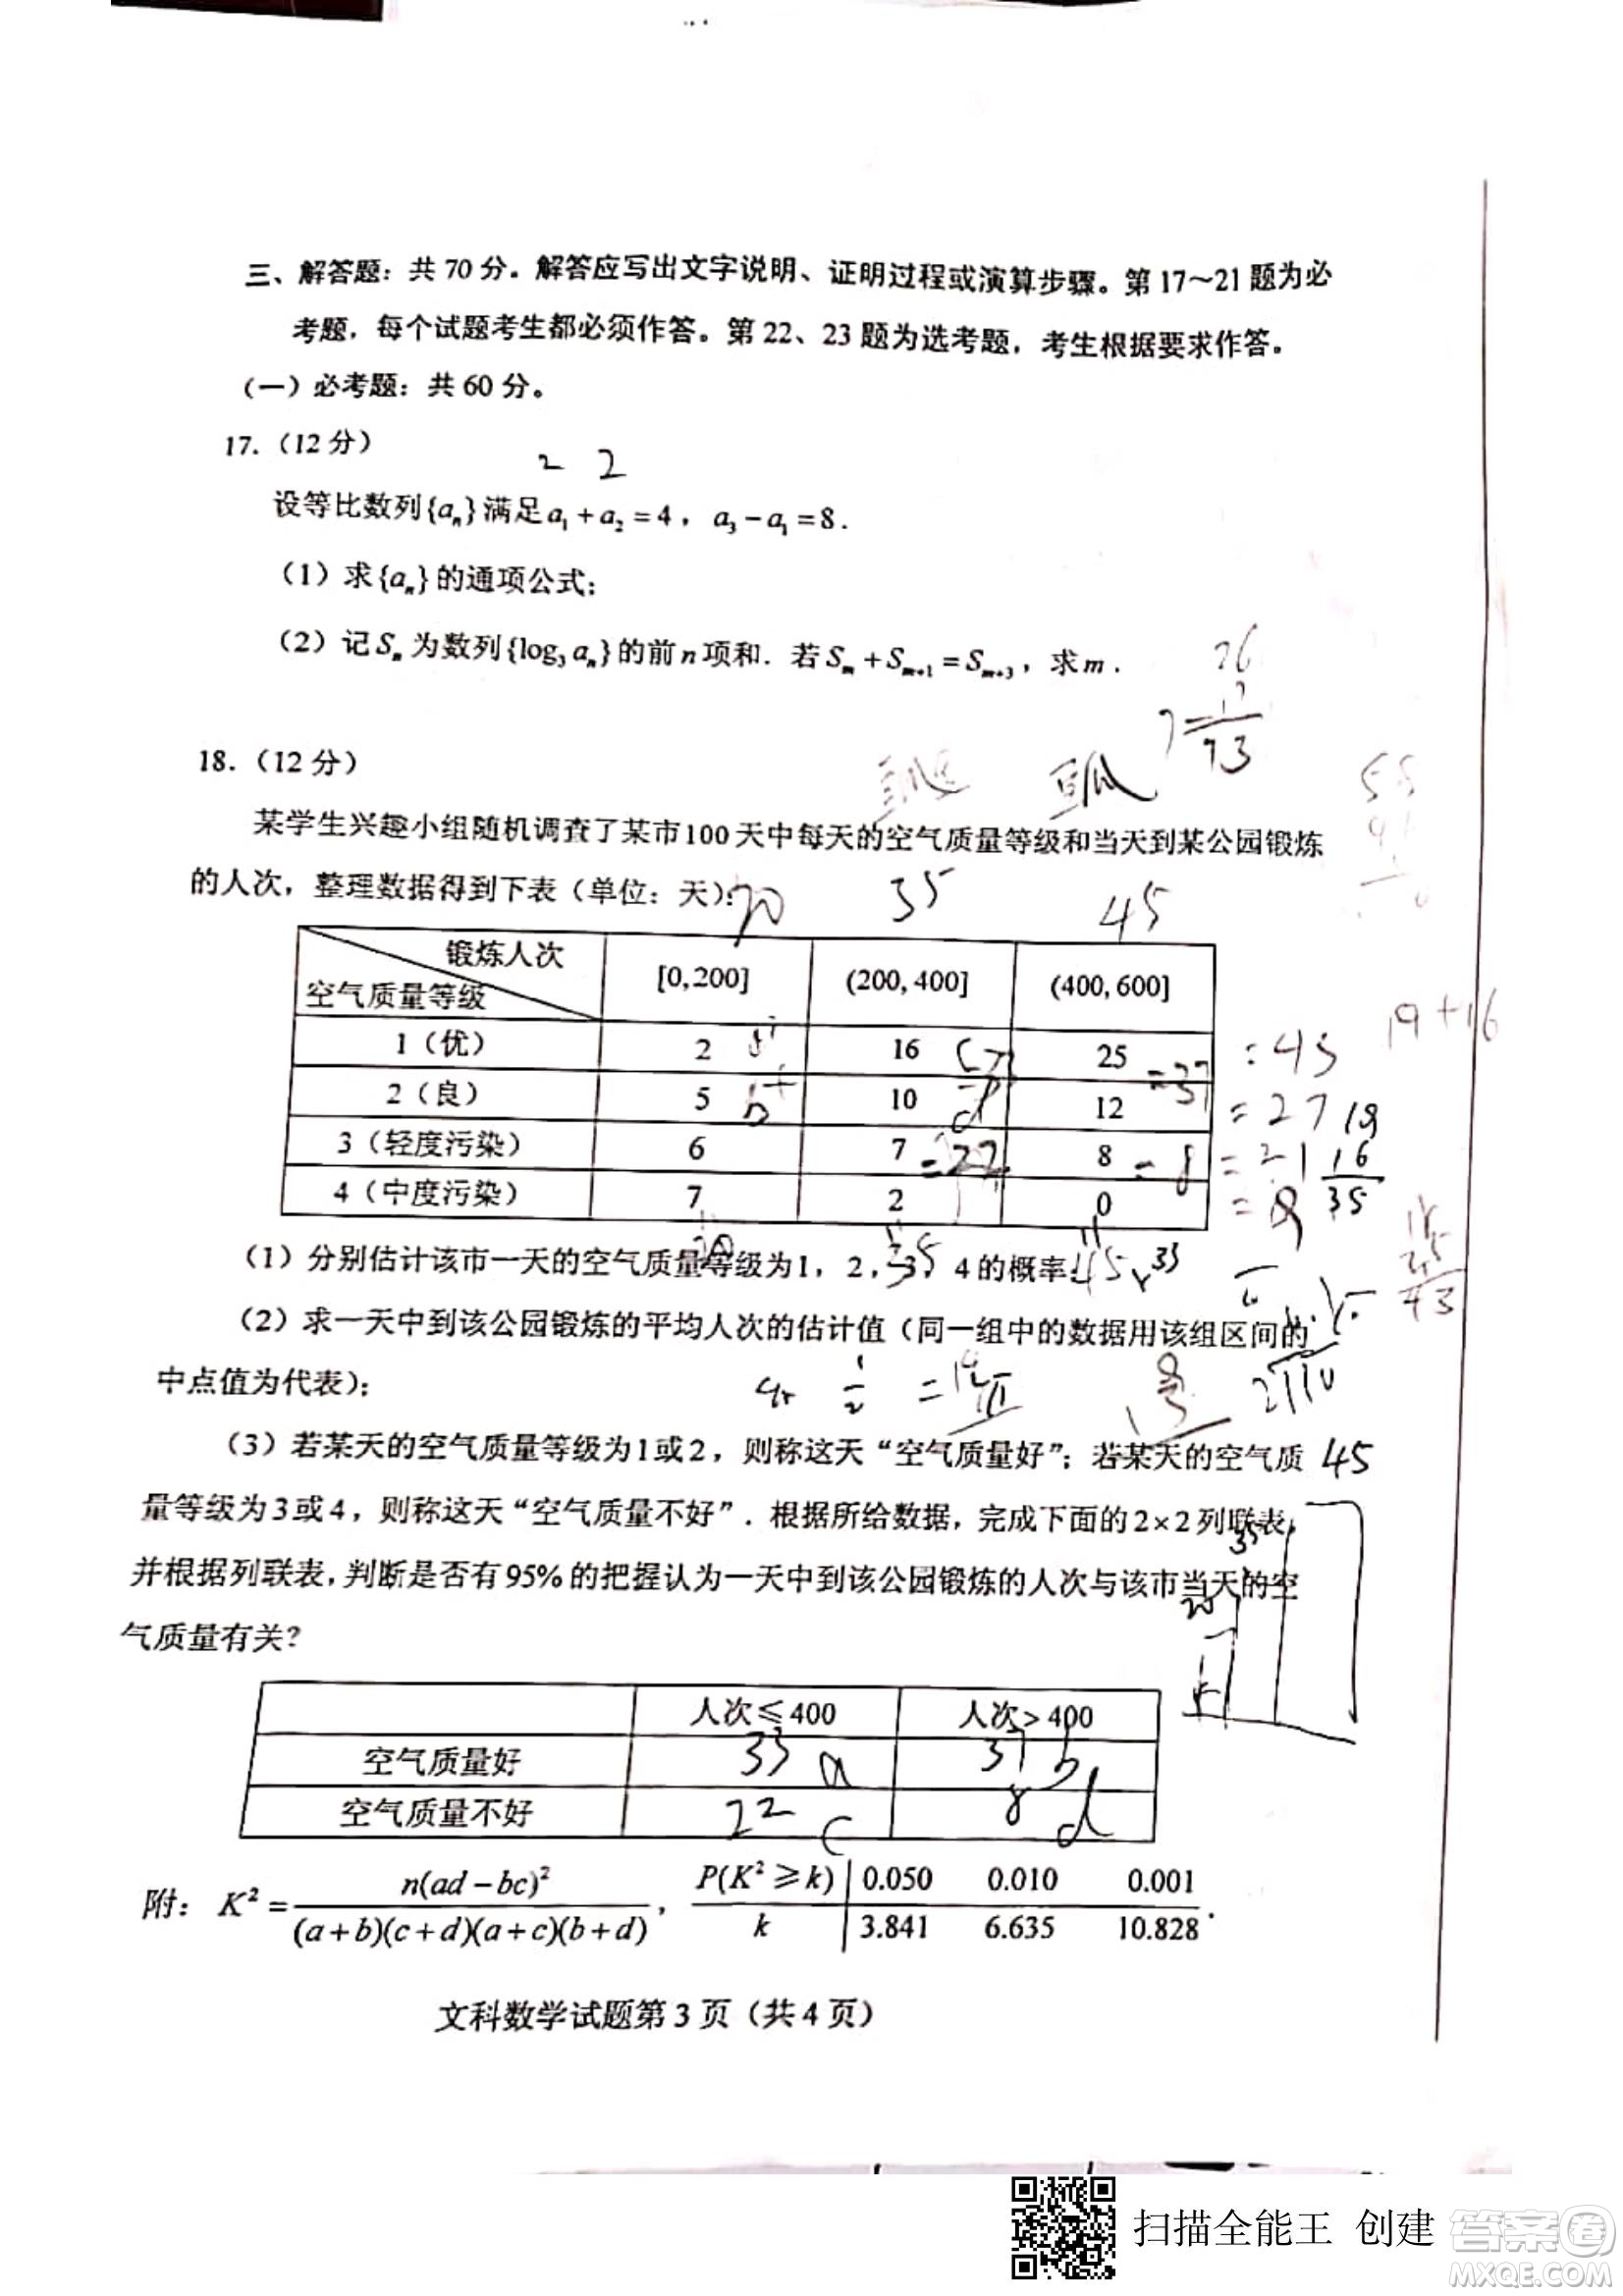 三、解答题：共 70 分。解答应写出文字说明、证明过程或演算步骤。第 17～21 题为必
考题，每个试题考生都必须作答。第 22、23 题为选考题，考生根据要求作答。
（一）必考题：共 60 分。
17.（12 分）
2 2
设等比数列{aₙ}满足a₁+a₂=4，a₃−a₁=8.
（1）求{aₙ}的通项公式；
（2）记Sₙ为数列{log₃aₙ}的前n项和. 若Sₘ+Sₘ₊₁=Sₘ₊₃，求m.
26
93
18.（12 分）
某学生兴趣小组随机调查了某市100天中每天的空气质量等级和当天到某公园锻炼
的人次，整理数据得到下表（单位：天）：
20 35 45
锻炼人次 [0,200] (200,400] (400,600]
空气质量等级
19+16
1（优） 2 16 25 =43
2（良） 5 10 12 =37 =27
3（轻度污染） 6 7 =22 8 =8 =21
4（中度污染） 7 2 0 =9
19
16
35
20 35 45
（1）分别估计该市一天的空气质量等级为1，2，3，4的概率；
33
（2）求一天中到该公园锻炼的平均人次的估计值（同一组中的数据用该组区间的
中点值为代表）；
（3）若某天的空气质量等级为1或2，则称这天“空气质量好”；若某天的空气质 45
量等级为3或4，则称这天“空气质量不好”. 根据所给数据，完成下面的2×2列联表，
35
并根据列联表，判断是否有95%的把握认为一天中到该公园锻炼的人次与该市当天的空
20
气质量有关？
人次≤400 人次>400
空气质量好 33 a 37 b
空气质量不好 22 c 8 d
附：K²=n(ad−bc)²/(a+b)(c+d)(a+c)(b+d)，
P(K²≥k) 0.050 0.010 0.001
k 3.841 6.635 10.828 .
文科数学试题第 3 页（共 4 页）
扫描全能王 创建
答案卷
MXQE.COM